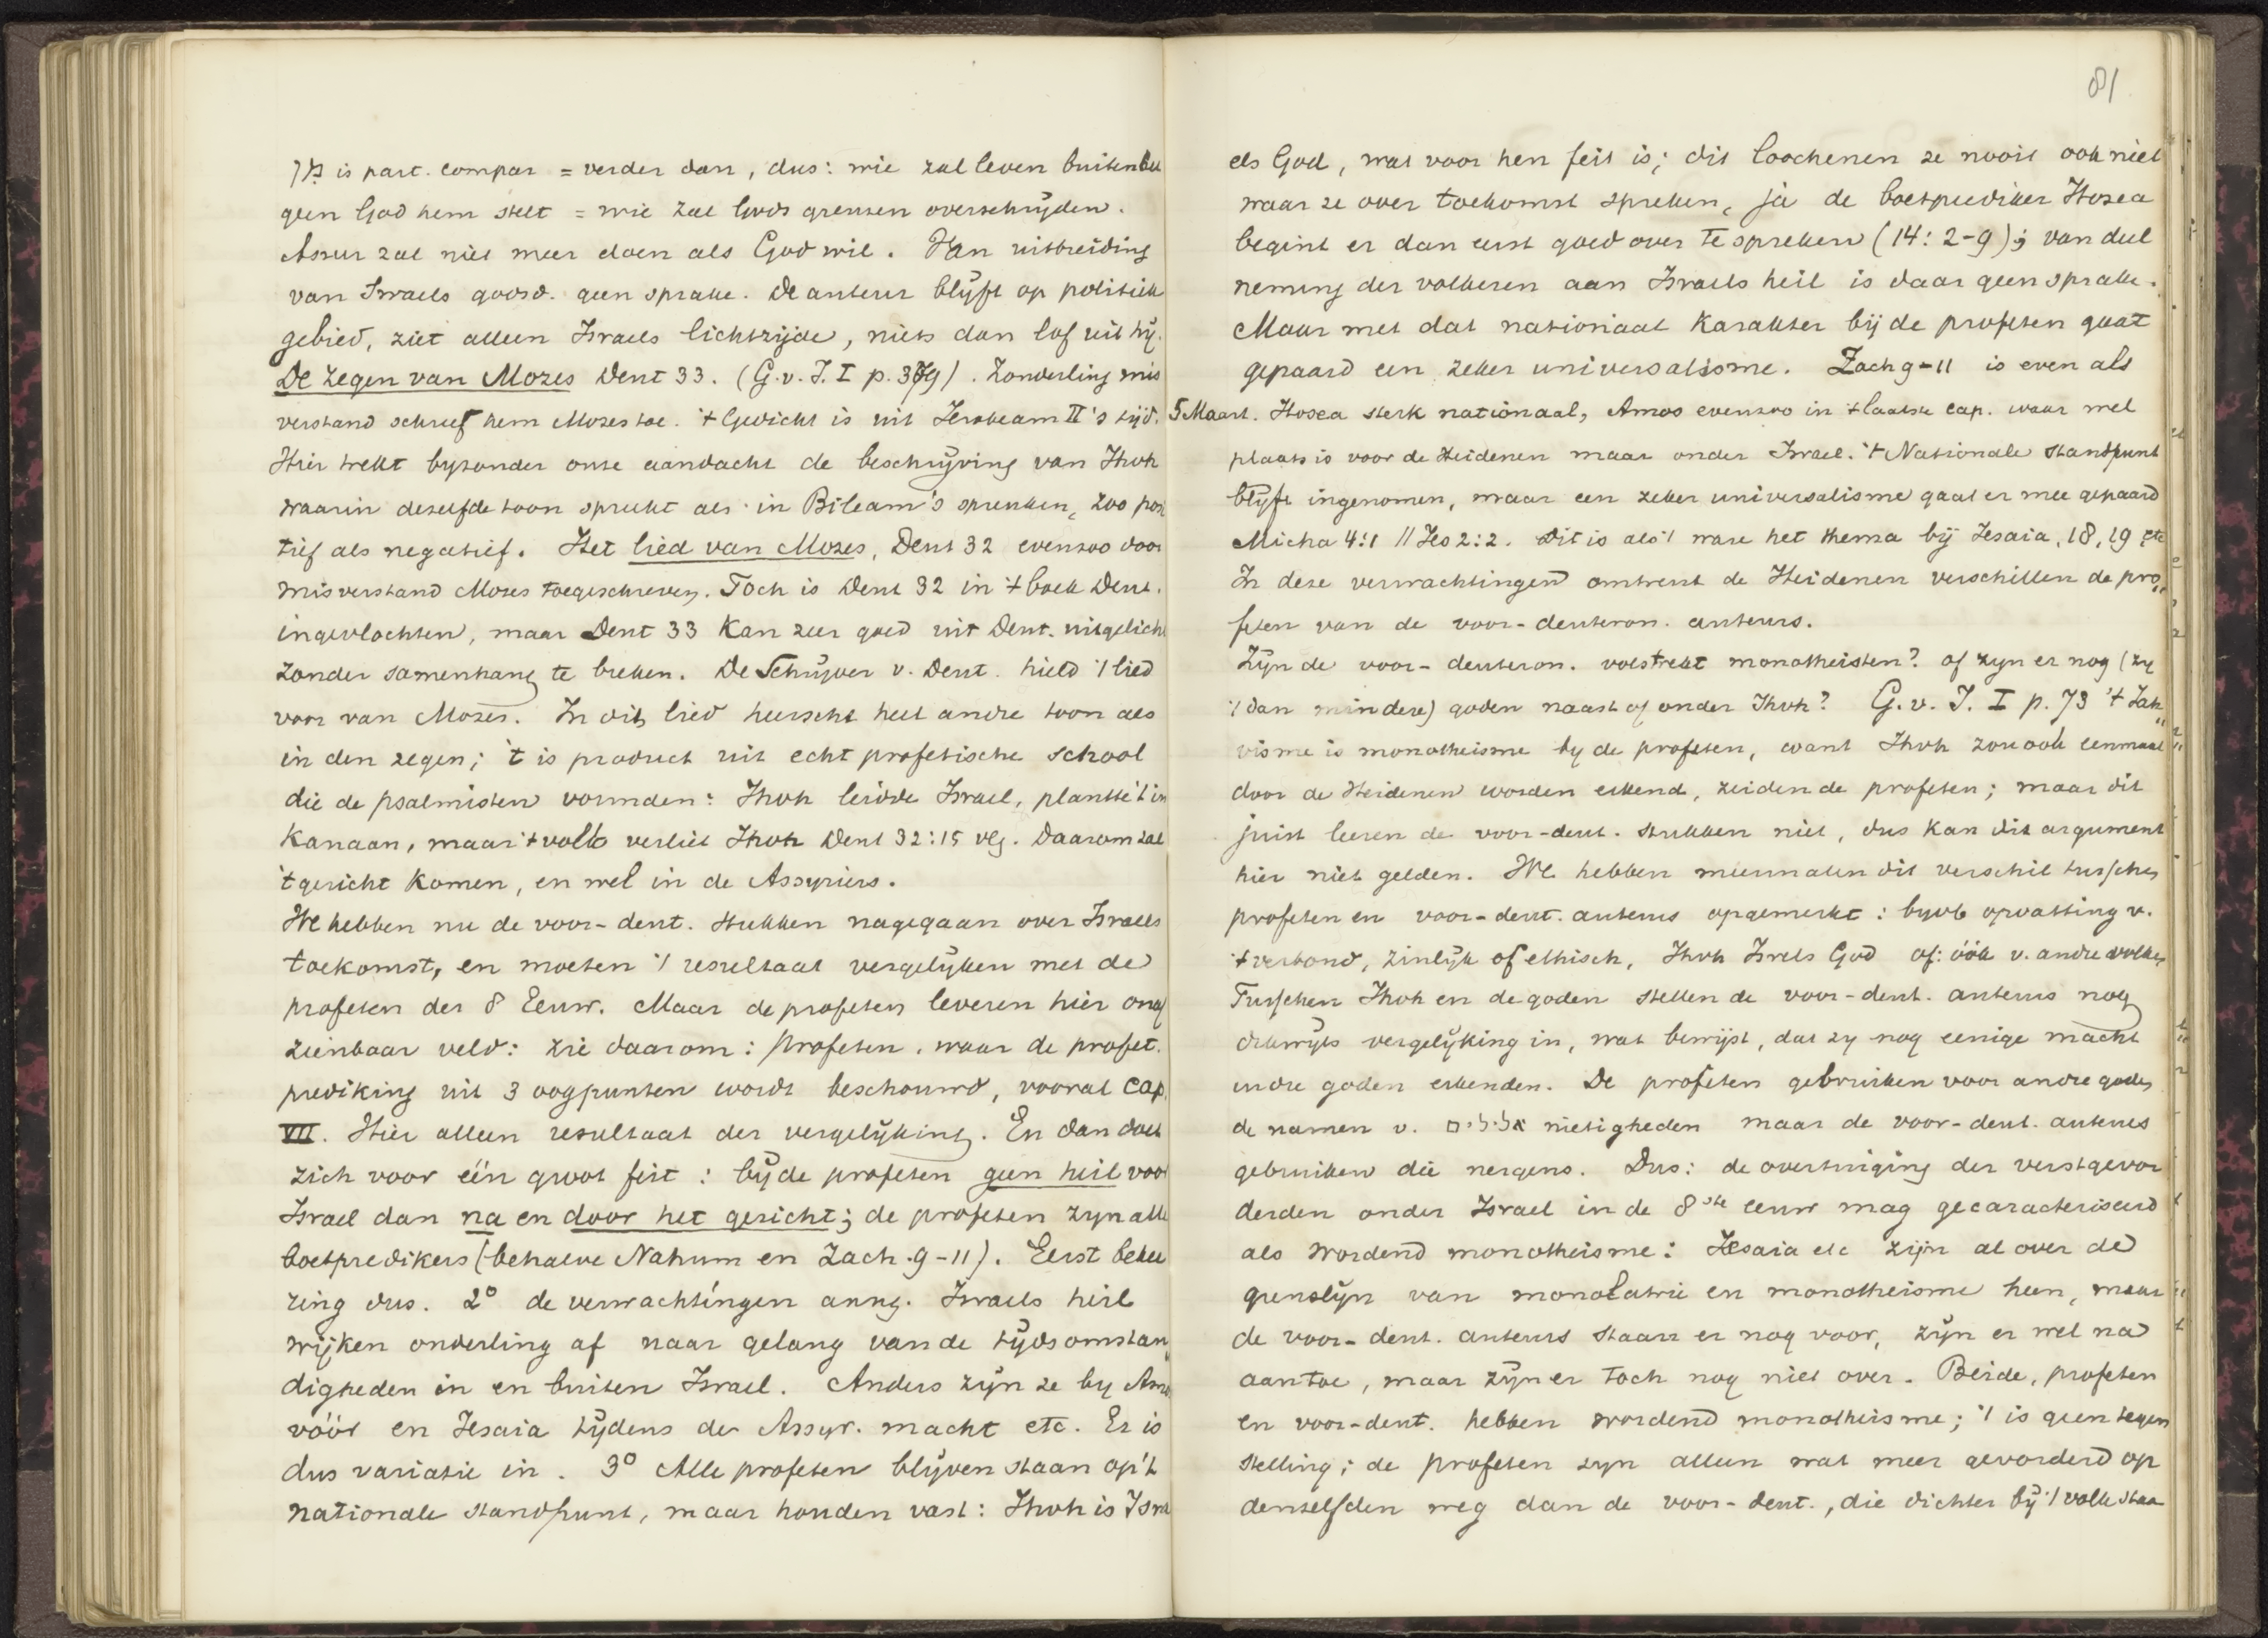 מִן is part. compar = verder dan, dus: wie zal leven buiten
geen God hem stelt = wie zal Gods grenzen overschrijden.
Assur zal niet meer doen als God wil. Van uitbreiding
van Israels godsd. geen sprake. De auteur blijft op politiek
gebied, ziet alleen Israels lichtzijde, niets dan lof uit hij.
De zegen van Mozes Deut 33. (G.v.I. I p. 379). Zonderling mis
verstand schreef hem Mozes toe. 't Gedicht is uit Jerobeam II's tijd.
Hier trekt byzonder onze aandacht de beschrijving van Jhvh
waarin dezelfde toon spreekt als in Bileam's spreuken, zoo posi
tief als negatief. Het lied van Mozes, Deut 32 evenzoo door
misverstand Mozes toegeschreven. Toch is Deut 32 in 't boek Deut.
ingevlochten, maar Deut 33 kan zeer goed uit Deut. uitgelicht
zonder samenhang te breken. De Schrijver v. Deut. hield 't lied
voor van Mozes. In dit lied heerscht heel andre toon als
in den zegen; 't is product uit echt profetische school
die de psalmisten vormden: Jhvh leidde Israel, plantte 't in
Kanaan, maar 't volk verliet Jhvh Deut 32:15 vlg. Daarom zal
't gericht komen, en wel in de Assyriers.
We hebben nu de voor-deut. stukken nagegaan over Israels
toekomst, en moeten 't resultaat vergelijken met de
profeten der 8 Eeuw. Maar de profeten leveren hier onaf
zienbaar veld: zie daarom: Profeten, waar de profet.
prediking uit 3 oogpunten wordt beschouwd, vooral Cap.
VII. Hier alleen resultaat der vergelijking. En dan doet
zich voor één groot feit: bij de profeten geen heil voor
Israel dan na en door het gericht; de profeten zyn alle
boetpredikers (behalve Nahum en Zach. 9-11). Eerst bekee
ring dus. 2° de verwachtingen aang. Israels heil
wijken onderling af naar gelang van de tijdsomstan
digheden in en buiten Israel. Anders zijn ze by Amos
vóór en Jesaia tijdens de Assyr. macht etc. Er is
dus variatie in. 3° Alle profeten blijven staan op 't
nationale standpunt, maar houden vast: Jhvh is Isra
81
els God, wat voor hen feit is; dit loochenen ze nooit ook niet
waar ze over toekomst spreken, ja de boetprediker Hosea
begint er dan eerst goed over te spreken (14:2-9); van deel
neming der volkeren aan Israels heil is daar geen sprake.
Maar met dat nationaal karakter bij de profeten gaat
gepaard een zeker universalisme. Zach 9-11 is even als
5 Maart. Hosea sterk nationaal, Amos evenzoo in 't laatste cap. waar wel
plaats is voor de Heidenen maar onder Israel. 't Nationale standpunt
blijft ingenomen, maar een zeker universalisme gaat er mee gepaard
Micha 4:1 // Jes 2:2. Dit is als 't ware het thema bij Jesaia, 18, 19 etc
In deze verwachtingen omtrent de Heidenen verschillen de pro„
feten van de voor-deuteron. auteurs.
Zijn de voor-deuteron. volstrekt monotheisten? of zyn er nog (zy
't dan mindere) goden naast of onder Jhvh? G.v.I. I p. 73 't Jah„
visme is monotheisme by de profeten, want Jhvh zou ook eenmaal
door de Heidenen worden erkend, zeiden de profeten; maar dit
juist leeren de voor-deut. stukken niet, dus kan dit argument
hier niet gelden. We hebben meermalen dit verschil tusschen
profeten en voor-deut. auteurs opgemerkt: byvb opvatting v.
't verbond, zinlijk of ethisch, Jhvh Isrels God of: óók v. andre volken
Tusschen Jhvh en de goden stellen de voor-deut. auteurs nog
dikwijls vergelijking in, wat bewijst, dat zy nog eenige macht
andre goden erkenden. De profeten gebruiken voor andre goden
de namen v. אלילים nietigheden maar de voor-deut. auteurs
gebruiken die nergens. Dus: de overtuiging der verstgevor
derden onder Israel in de 8ste eeuw mag gecaracteriseerd
als wordend monotheisme: Jesaia etc zijn al over de
grenslijn van monolatrie en monotheisme heen, maar
de voor-deut. auteurs staan er nog voor, zijn er wel na
aan toe, maar zijn er toch nog niet over. Beide, profeten
en voor-deut. hebben wordend monotheisme; 't is geen tegen
stelling; de profeten zyn alleen wat meer gevorderd op
denzelfden weg dan de voor-deut., die dichter bij 't volk staa